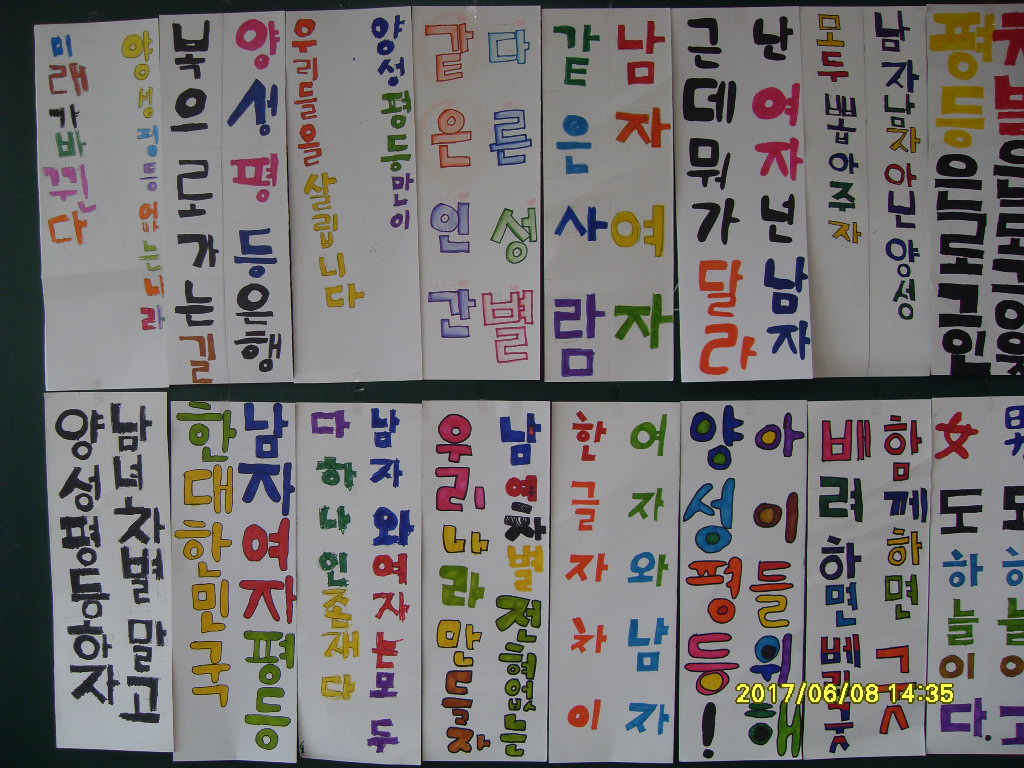 양성평등없는나라
미래가바뀐다
양성평등은행
복으로가는길
양성평등만이
우리들을살립니다
다른성별
같은인간
남자여자
같은사람
난여자넌남자
근데뭐가달라
남자남자아닌양성
모두뽑아주자
평등은
남녀차별말고
양성평등하자
남자여자평등
한대한민국
남자와여자는모두
다하나인존재다
남여차별전혀없는
우리나라만들자
여자와남자
한글자차이
아이들위해
양성평등!
함께하면ㄱㅅ
배려하면베리굿
男도하늘이고
女도하늘이다.
2017/06/08 14:35